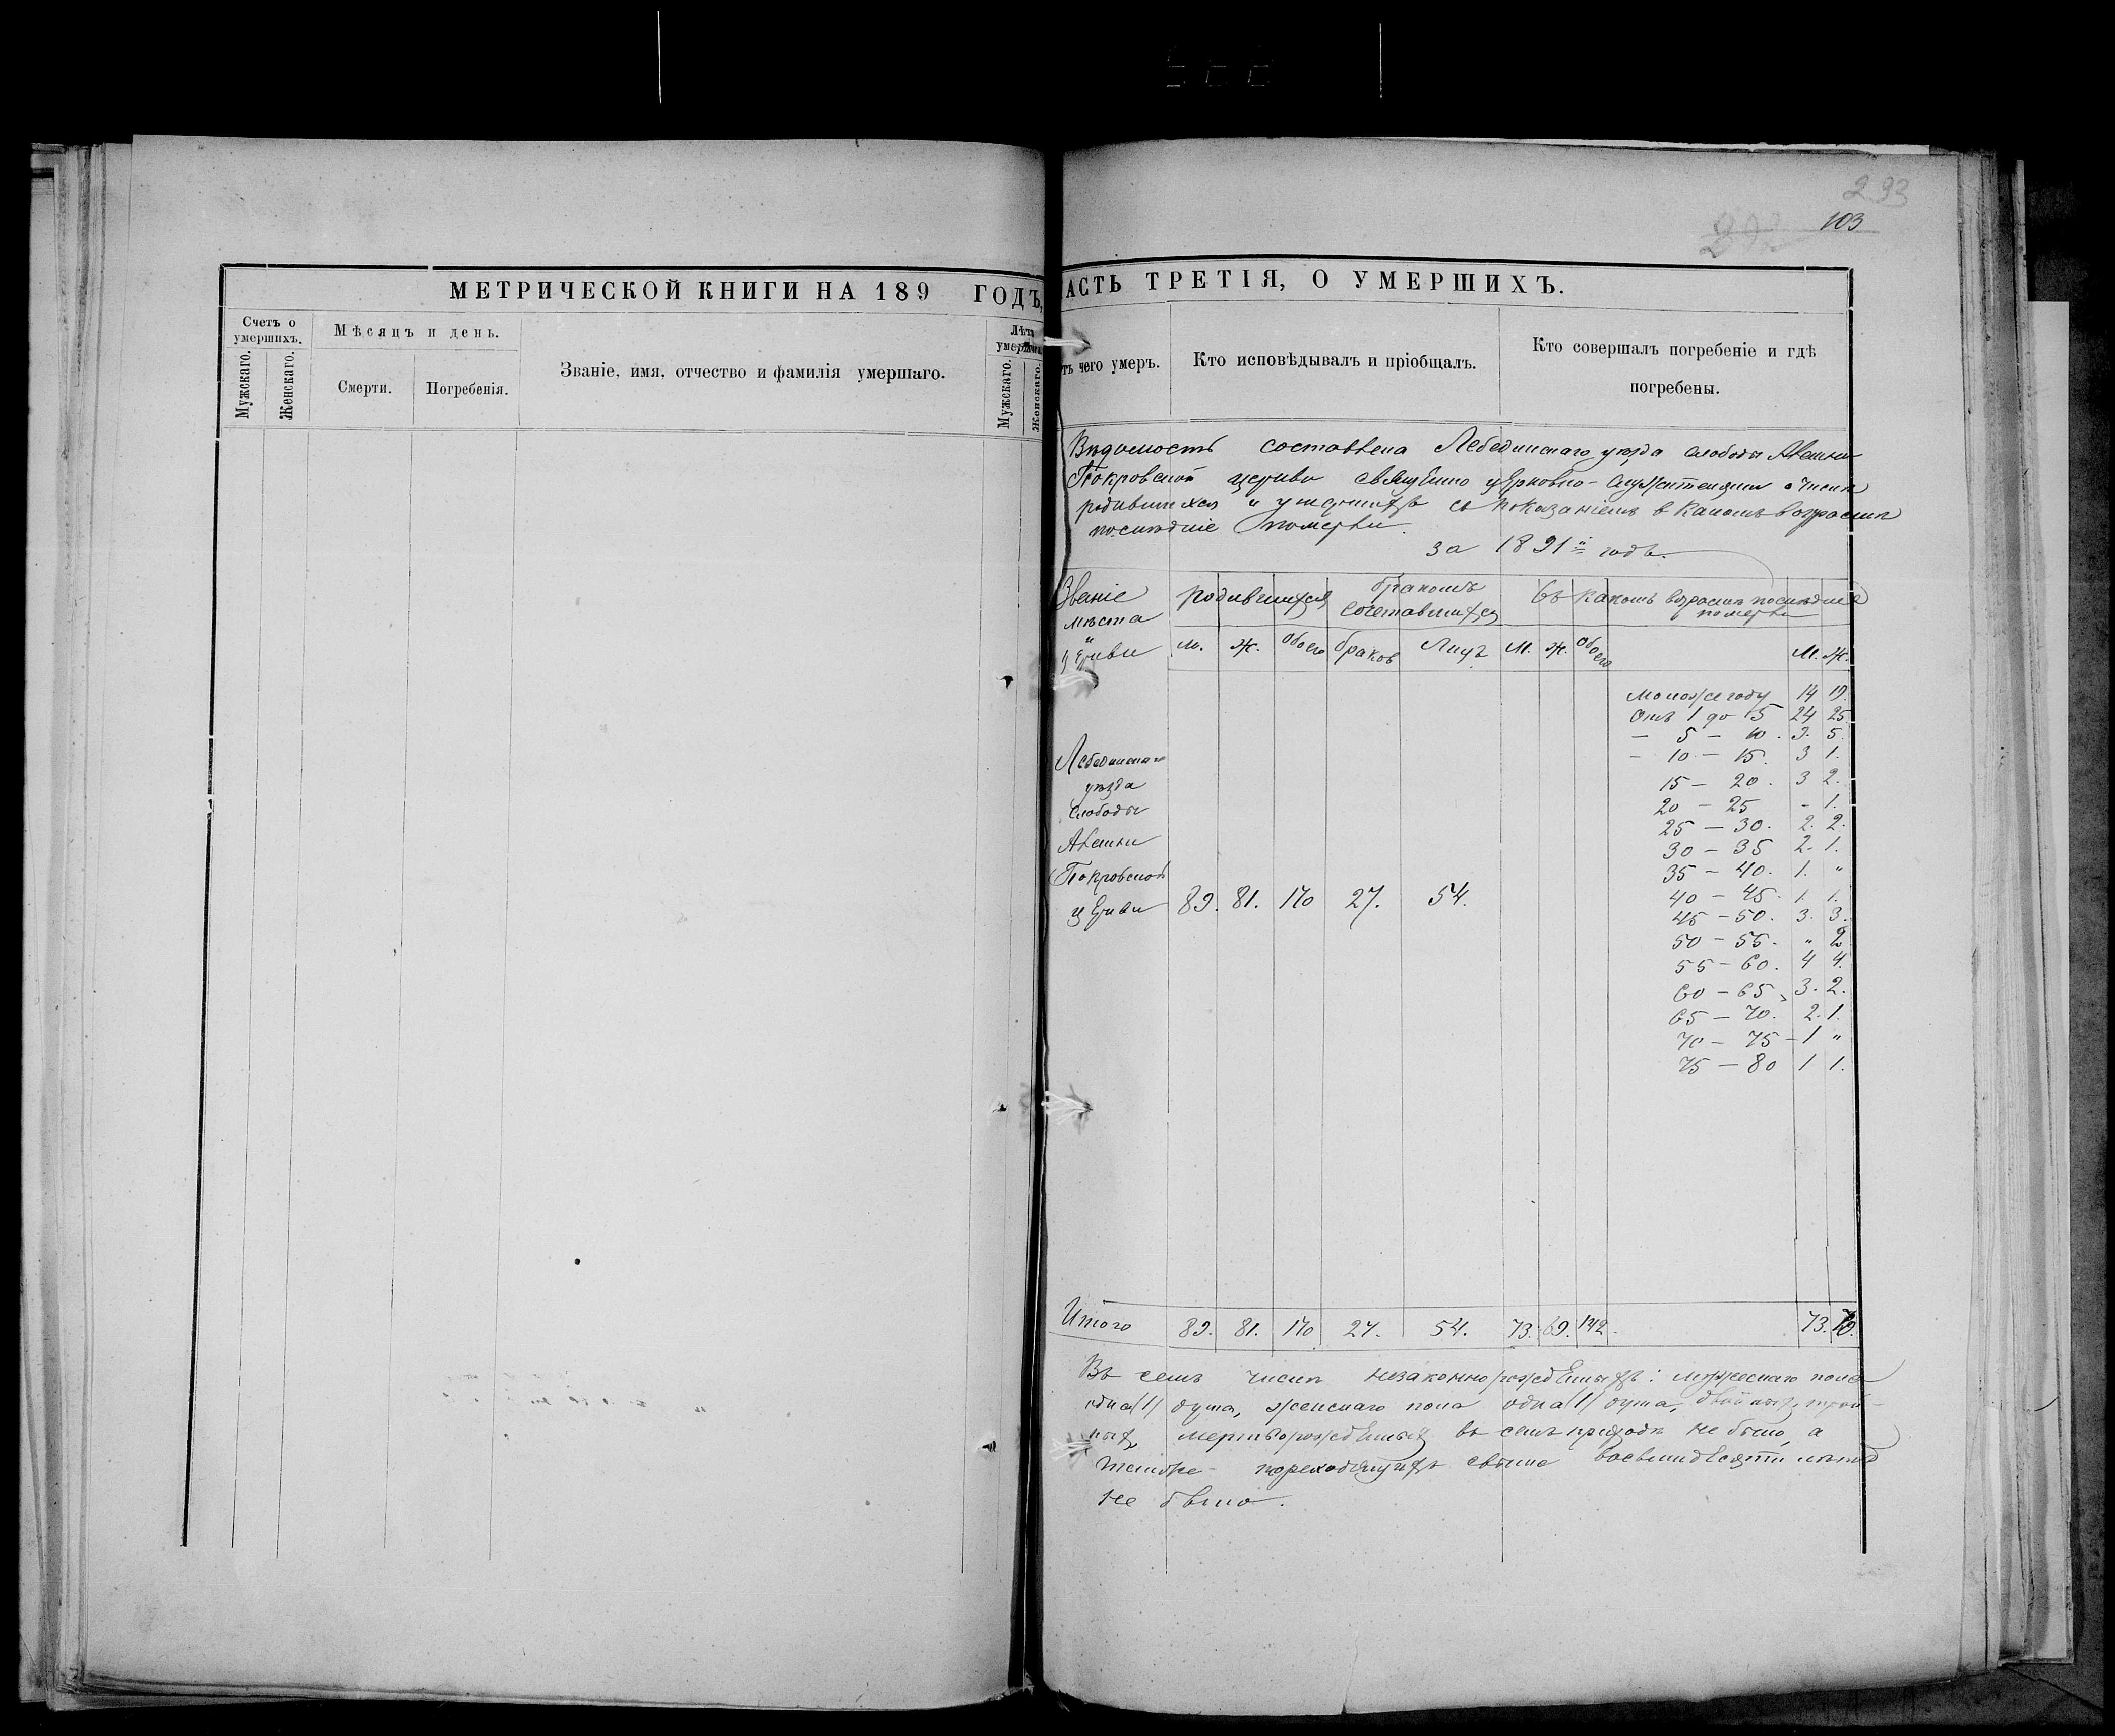 293
103
МЕТРИЧЕСКОЙ КНИГИ НА 189 ГОДЪ,
АСТЬ ТРЕТІЯ, О УМЕРШИХЪ.
Счетъ о умершихъ.
Мужскаго.
Женскаго.
Мѣсяцъ и день.
Смерти.
Погребенія.
Званіе, имя, отчество и фамилія умершаго.
Лѣта
Мужскаго.
Женскаго.
чего умеръ.
Кто исповѣдывалъ и пріобщалъ.
Кто совершалъ погребеніе и гдѣ
погребены.
Вѣдомость составлена Лебединскаго уѣзда слободы
Покровской церкви священно церковно-служителями о числѣ
родившихся и умершихъ съ показаніемъ в какомъ возрастѣ
послѣдніе померли.
за 1891й годъ.
Званіе мѣста и церкви
родившихся
бракомъ сочетавшихся
въ какомъ возрастѣ послѣдніе померли
м. ж. обоего браков Лицъ М. Ж. обоего М. Ж.
моложе году 14 19.
отъ 1 до 5 24 25.
— 5 — 10. 9. 5.
— 10 — 15. 3 1.
15 — 20. 3 2.
20 — 25 - 1.
25 — 30. 2. 2.
30 — 35 2. 1.
35 — 40. 1. "
40 — 45. 1. 1.
45 — 50. 3. 3.
50 — 55. " 2
55 — 60. 4 4.
60 — 65. 3. 2.
65 — 70. 2. 1.
70 — 75 — 1 "
75 — 80 1 1.
Лебединскаго
уѣзда
слободы
Покровской
церкви 89. 81. 170 27. 54.
Итого 89. 81. 170 27. 54. 73. 69. 142. 73.
Въ семъ числѣ незаконнорожденныхъ: мужескаго пола
одна /1/ душа, женскаго пола одна /1/ душа, двойныхъ, трой-
ныхъ, мертворожденныхъ въ семъ приходѣ не было, а
также переходящихъ свыше восьмидесяти лѣтъ
не было.